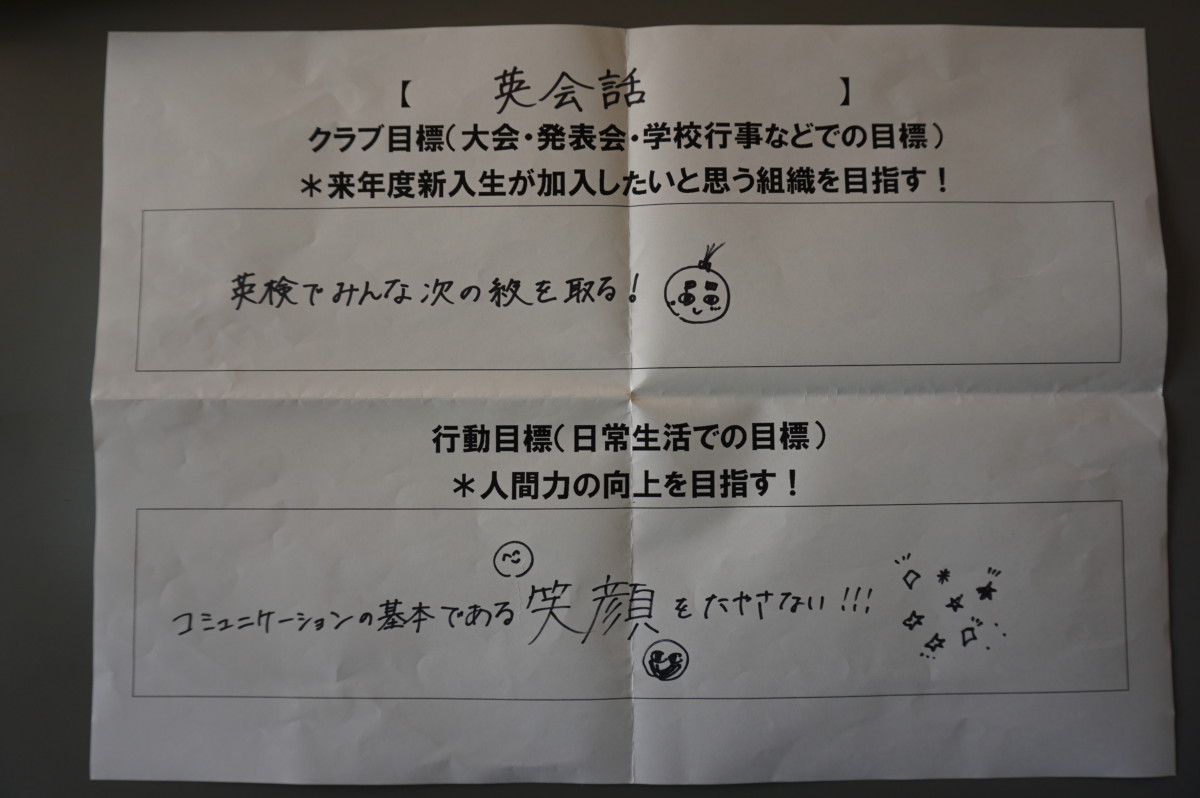 【 英会話 】
クラブ目標（大会・発表会・学校行事などでの目標）
＊来年度新入生が加入したいと思う組織を目指す！
英検でみんな次の級を取る！
行動目標（日常生活での目標）
＊人間力の向上を目指す！
コミュニケーションの基本である笑顔をたやさない!!!